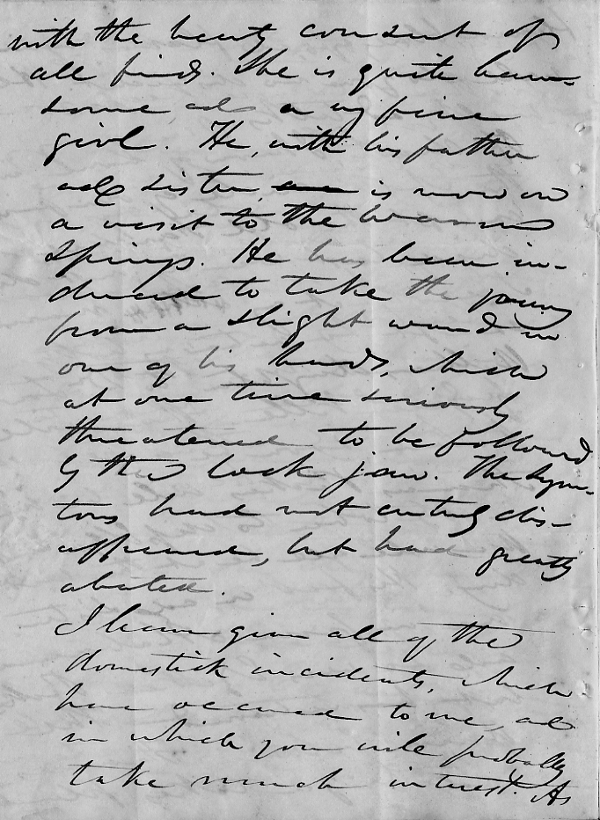 with the hearty consent of
all finds. She is quite hand-
some, and a very fine
girl. He, with his father
and sister, is now on
a visit to the warm
springs. He has been in-
duced to take the journey
from a slight wound in
one of his hands, which
at one time seriously
threatened to be followed
by the lock jaw. The symp-
toms had not entirely dis-
appeared, but had greatly
abated.
I have given all of the
domestick incidents, which
have occured to me, and
in which you will probably
take much interest. As